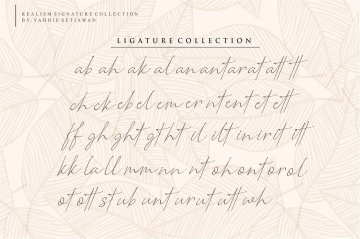 REALISM SIGNATURE COLLECTION
BY. YADHIE SETIAWAN
LIGATURE COLLECTION
ab ah ak al an antarat att tt
ch ck eb el em er nt ent et ett
ff gh ght gt ht il ilt in irit itt
kk la ll mm nn nt oh ont or ol
ot ott st ub unt urut utt wh